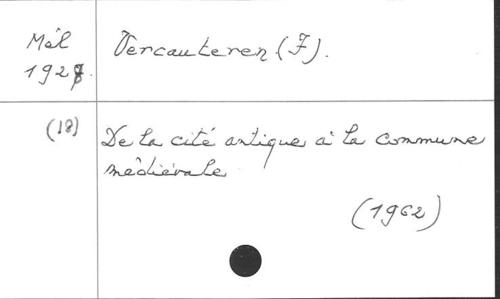 Mél Vercauteren (F).
192
(18) De la cité antique à la commune
médiévale
(1962)